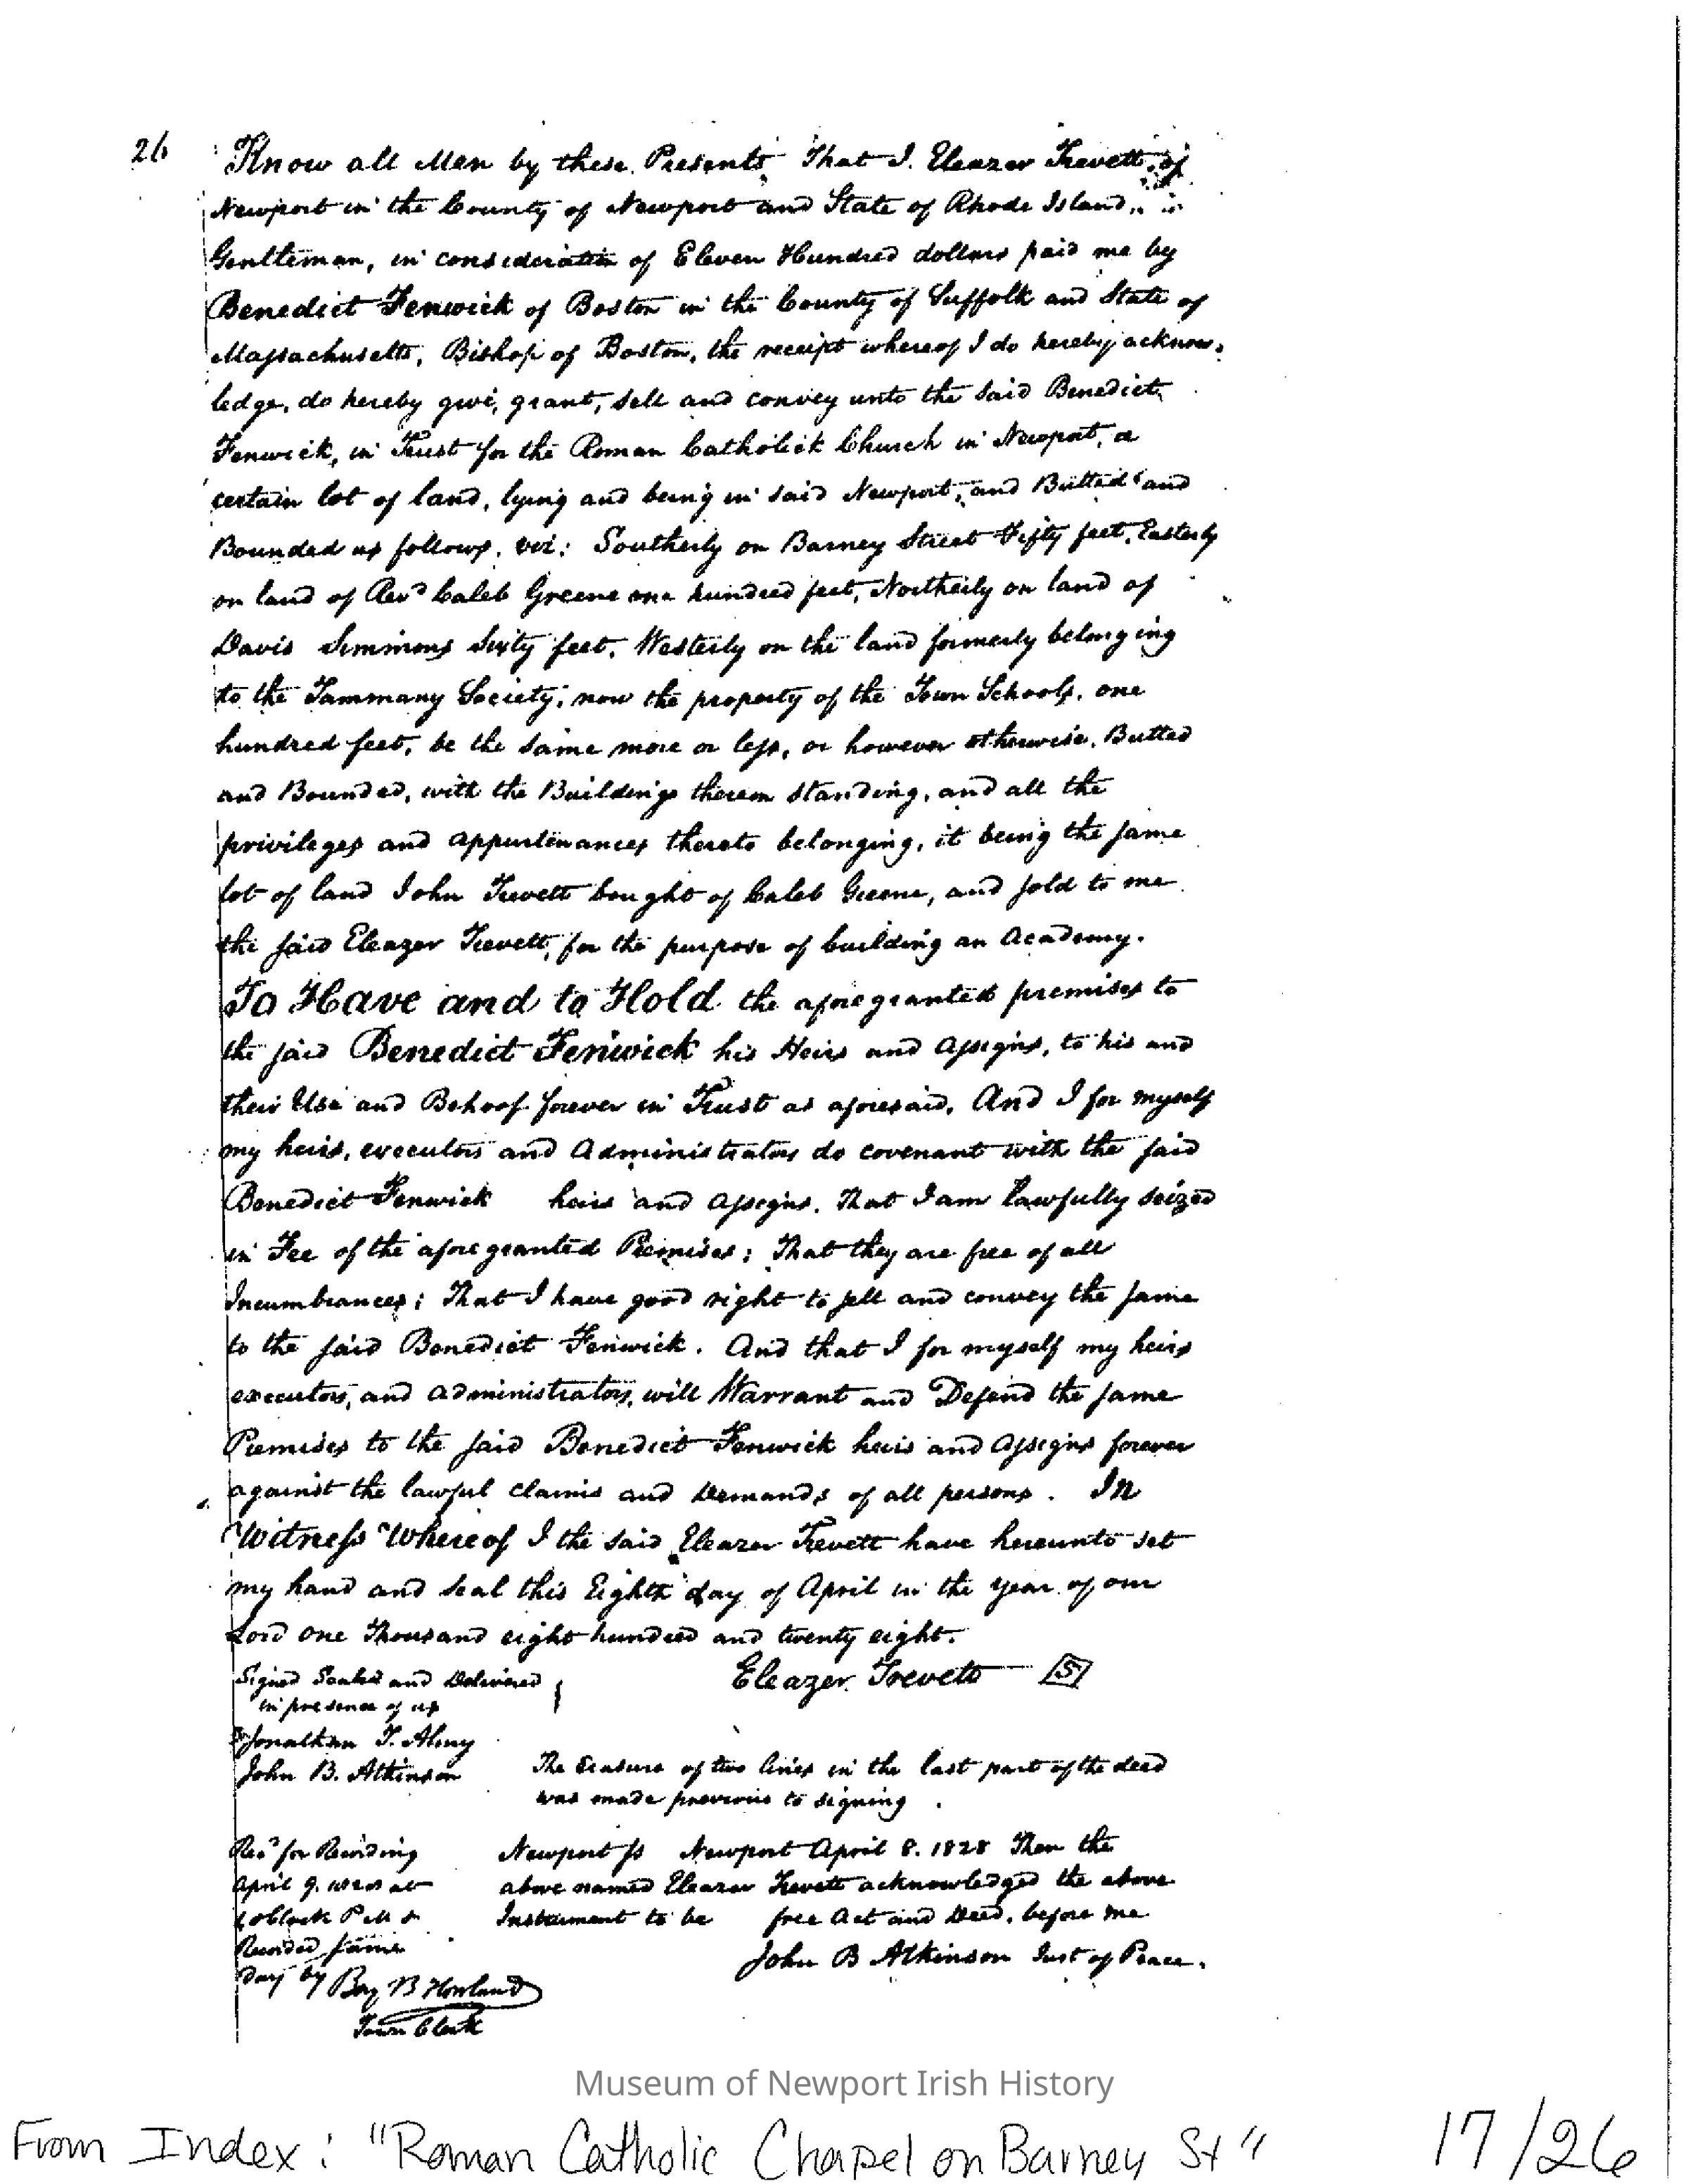 26
Know all Men by these Presents, That I, Eleazer Trevett, of
Newport in the County of Newport and State of Rhode Island,
Gentleman, in consideration of Eleven Hundred dollars paid me by
Benedict Fenwick of Boston in the County of Suffolk and State of
Massachusetts, Bishop of Boston, the receipt whereof I do hereby acknow-
ledge, do hereby give, grant, sell and convey unto the said Benedict
Fenwick, in Trust for the Roman Catholick Church in Newport, a
certain lot of land, lying and being in said Newport, and Butted and
Bounded as follows, viz: Southerly on Barney Street Fifty feet, Easterly
on land of Revd Caleb Greene one hundred feet, Northerly on land of
Davis Simmons Sixty feet, Westerly on the land formerly belonging
to the Tammany Society, now the property of the Town Schools, one
hundred feet, be the same more or less, or however otherwise, Butted
and Bounded, with the Buildings thereon standing, and all the
privileges and appurtenances thereto belonging, it being the same
lot of land John Trevett bought of Caleb Greene, and sold to me
the said Eleazer Trevett, for the purpose of building an Academy.
To Have and to Hold the aforegranted premises to
the said Benedict Fenwick his Heirs and Assigns, to his and
their Use and Behoof forever in Trust as aforesaid, And I for myself
my heirs, executors and Administrators do covenant with the said
Benedict Fenwick heirs and Assigns, That I am lawfully seized
in Fee of the aforegranted Premises; That they are free of all
Incumbrances; That I have good right to sell and convey the same
to the said Benedict Fenwick. And that I for myself my heirs
executors, and administrators, will Warrant and Defend the same
Premises to the said Benedict Fenwick heirs and Assigns forever
against the lawful claims and demands of all persons. In
Witness Whereof I the said Eleazer Trevett have hereunto set
my hand and seal this Eighth day of April in the year of our
Lord one Thousand eight hundred and twenty eight.
Signed Sealed and Delivered
in presence of us
Eleazer Trevett S
Jonathan T. Almy
John B. Atkinson
The Erasure of two lines in the last part of the deed
was made previous to signing
Recd for Recording
April 9. 1828 at
4 oClock P M &
Recorded same
day by Benj B Howland
Town Clerk
Newport ss Newport April 8. 1828 Then the
above named Eleazer Trevett acknowledged the above
Instrument to be free Act and Deed, before me
John B Atkinson Just of Peace.
Museum of Newport Irish History
From Index: "Roman Catholic Chapel on Barney St"
17/26